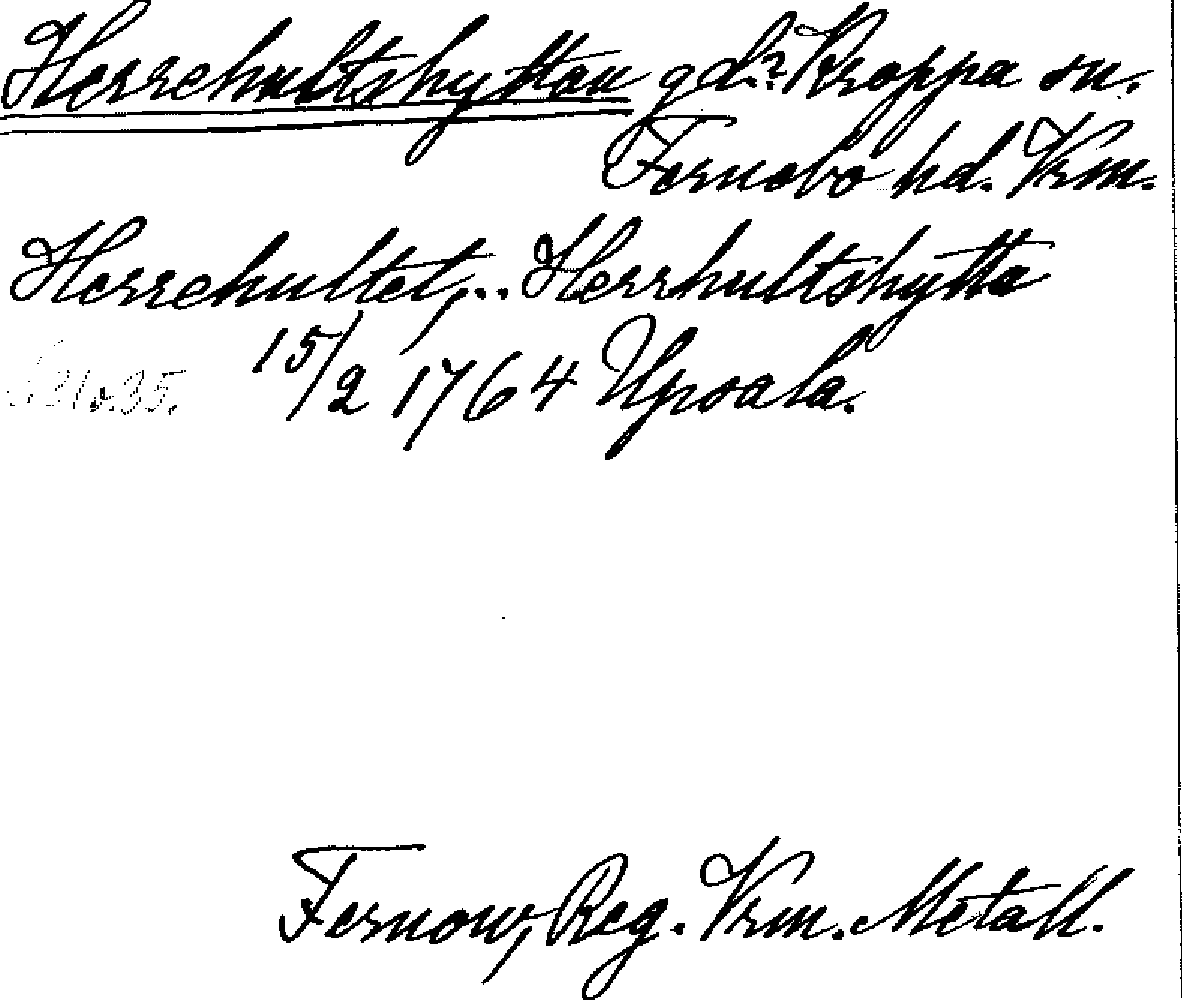 Herrehultshyttan gd? Kroppa sn.
Fernebo hd. Vrm.
Herrehultet,.. Herrhultshytta
15/2 1764 Upsala.
Fernow, Reg. Vrm. Metall.